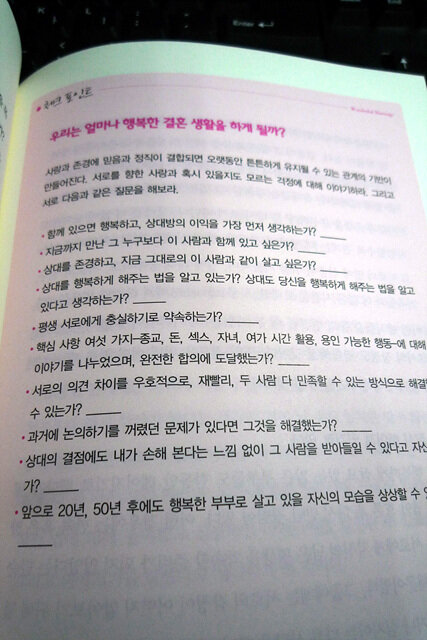 체크 포인트
우리는 얼마나 행복한 결혼 생활을 하게 될까?
사랑과 존경에 믿음과 정직이 결합되면 오랫동안 튼튼하게 유지될 수 있는 관계의 기반이
만들어진다. 서로를 향한 사랑과 혹시 있을지도 모르는 걱정에 대해 이야기하라. 그리고
서로 다음과 같은 질문을 해보라.
• 함께 있으면 행복하고, 상대방의 이익을 가장 먼저 생각하는가? _____
• 지금까지 만난 그 누구보다 이 사람과 함께 있고 싶은가? _____
• 상대를 존경하고, 지금 그대로의 이 사람과 같이 살고 싶은가? _____
• 상대를 행복하게 해주는 법을 알고 있는가? 상대도 당신을 행복하게 해주는 법을 알고
있다고 생각하는가? _____
• 평생 서로에게 충실하기로 약속하는가? _____
• 핵심 사항 여섯 가지–종교, 돈, 섹스, 자녀, 여가 시간 활용, 용인 가능한 행동–에 대해
이야기를 나누었으며, 완전한 합의에 도달했는가? _____
• 서로의 의견 차이를 우호적으로, 재빨리, 두 사람 다 만족할 수 있는 방식으로 해결
수 있는가? _____
• 과거에 논의하기를 꺼렸던 문제가 있다면 그것을 해결했는가? _____
• 상대의 결점에도 내가 손해 본다는 느낌 없이 그 사람을 받아들일 수 있다고 자신
가? _____
• 앞으로 20년, 50년 후에도 행복한 부부로 살고 있을 자신의 모습을 상상할 수
_____
Enter